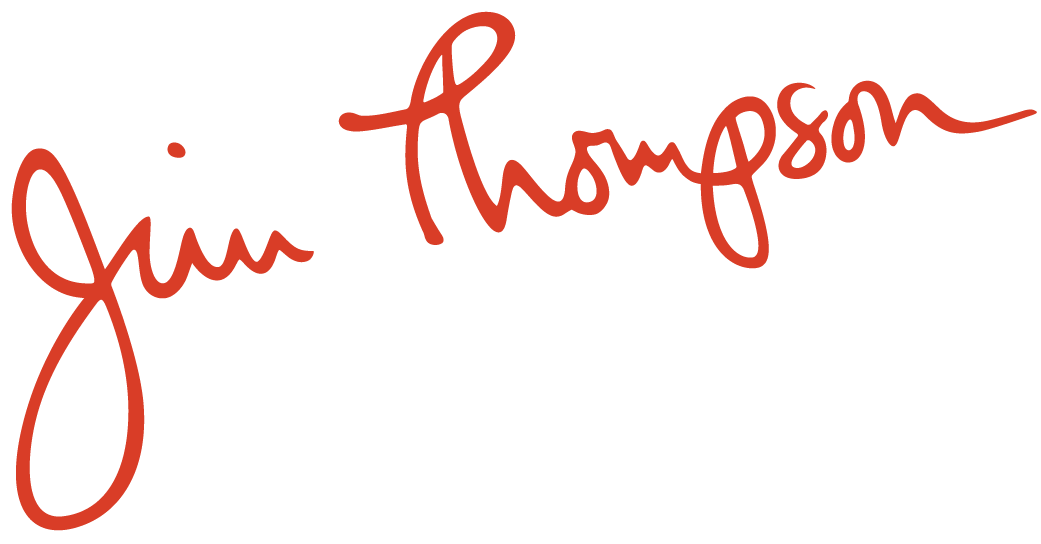 Jim Thompson